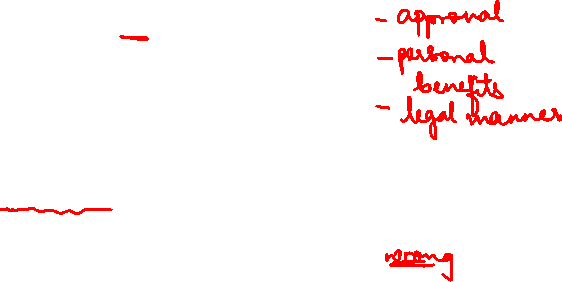 - approval
- personal
benefits
- legal manner
wrong